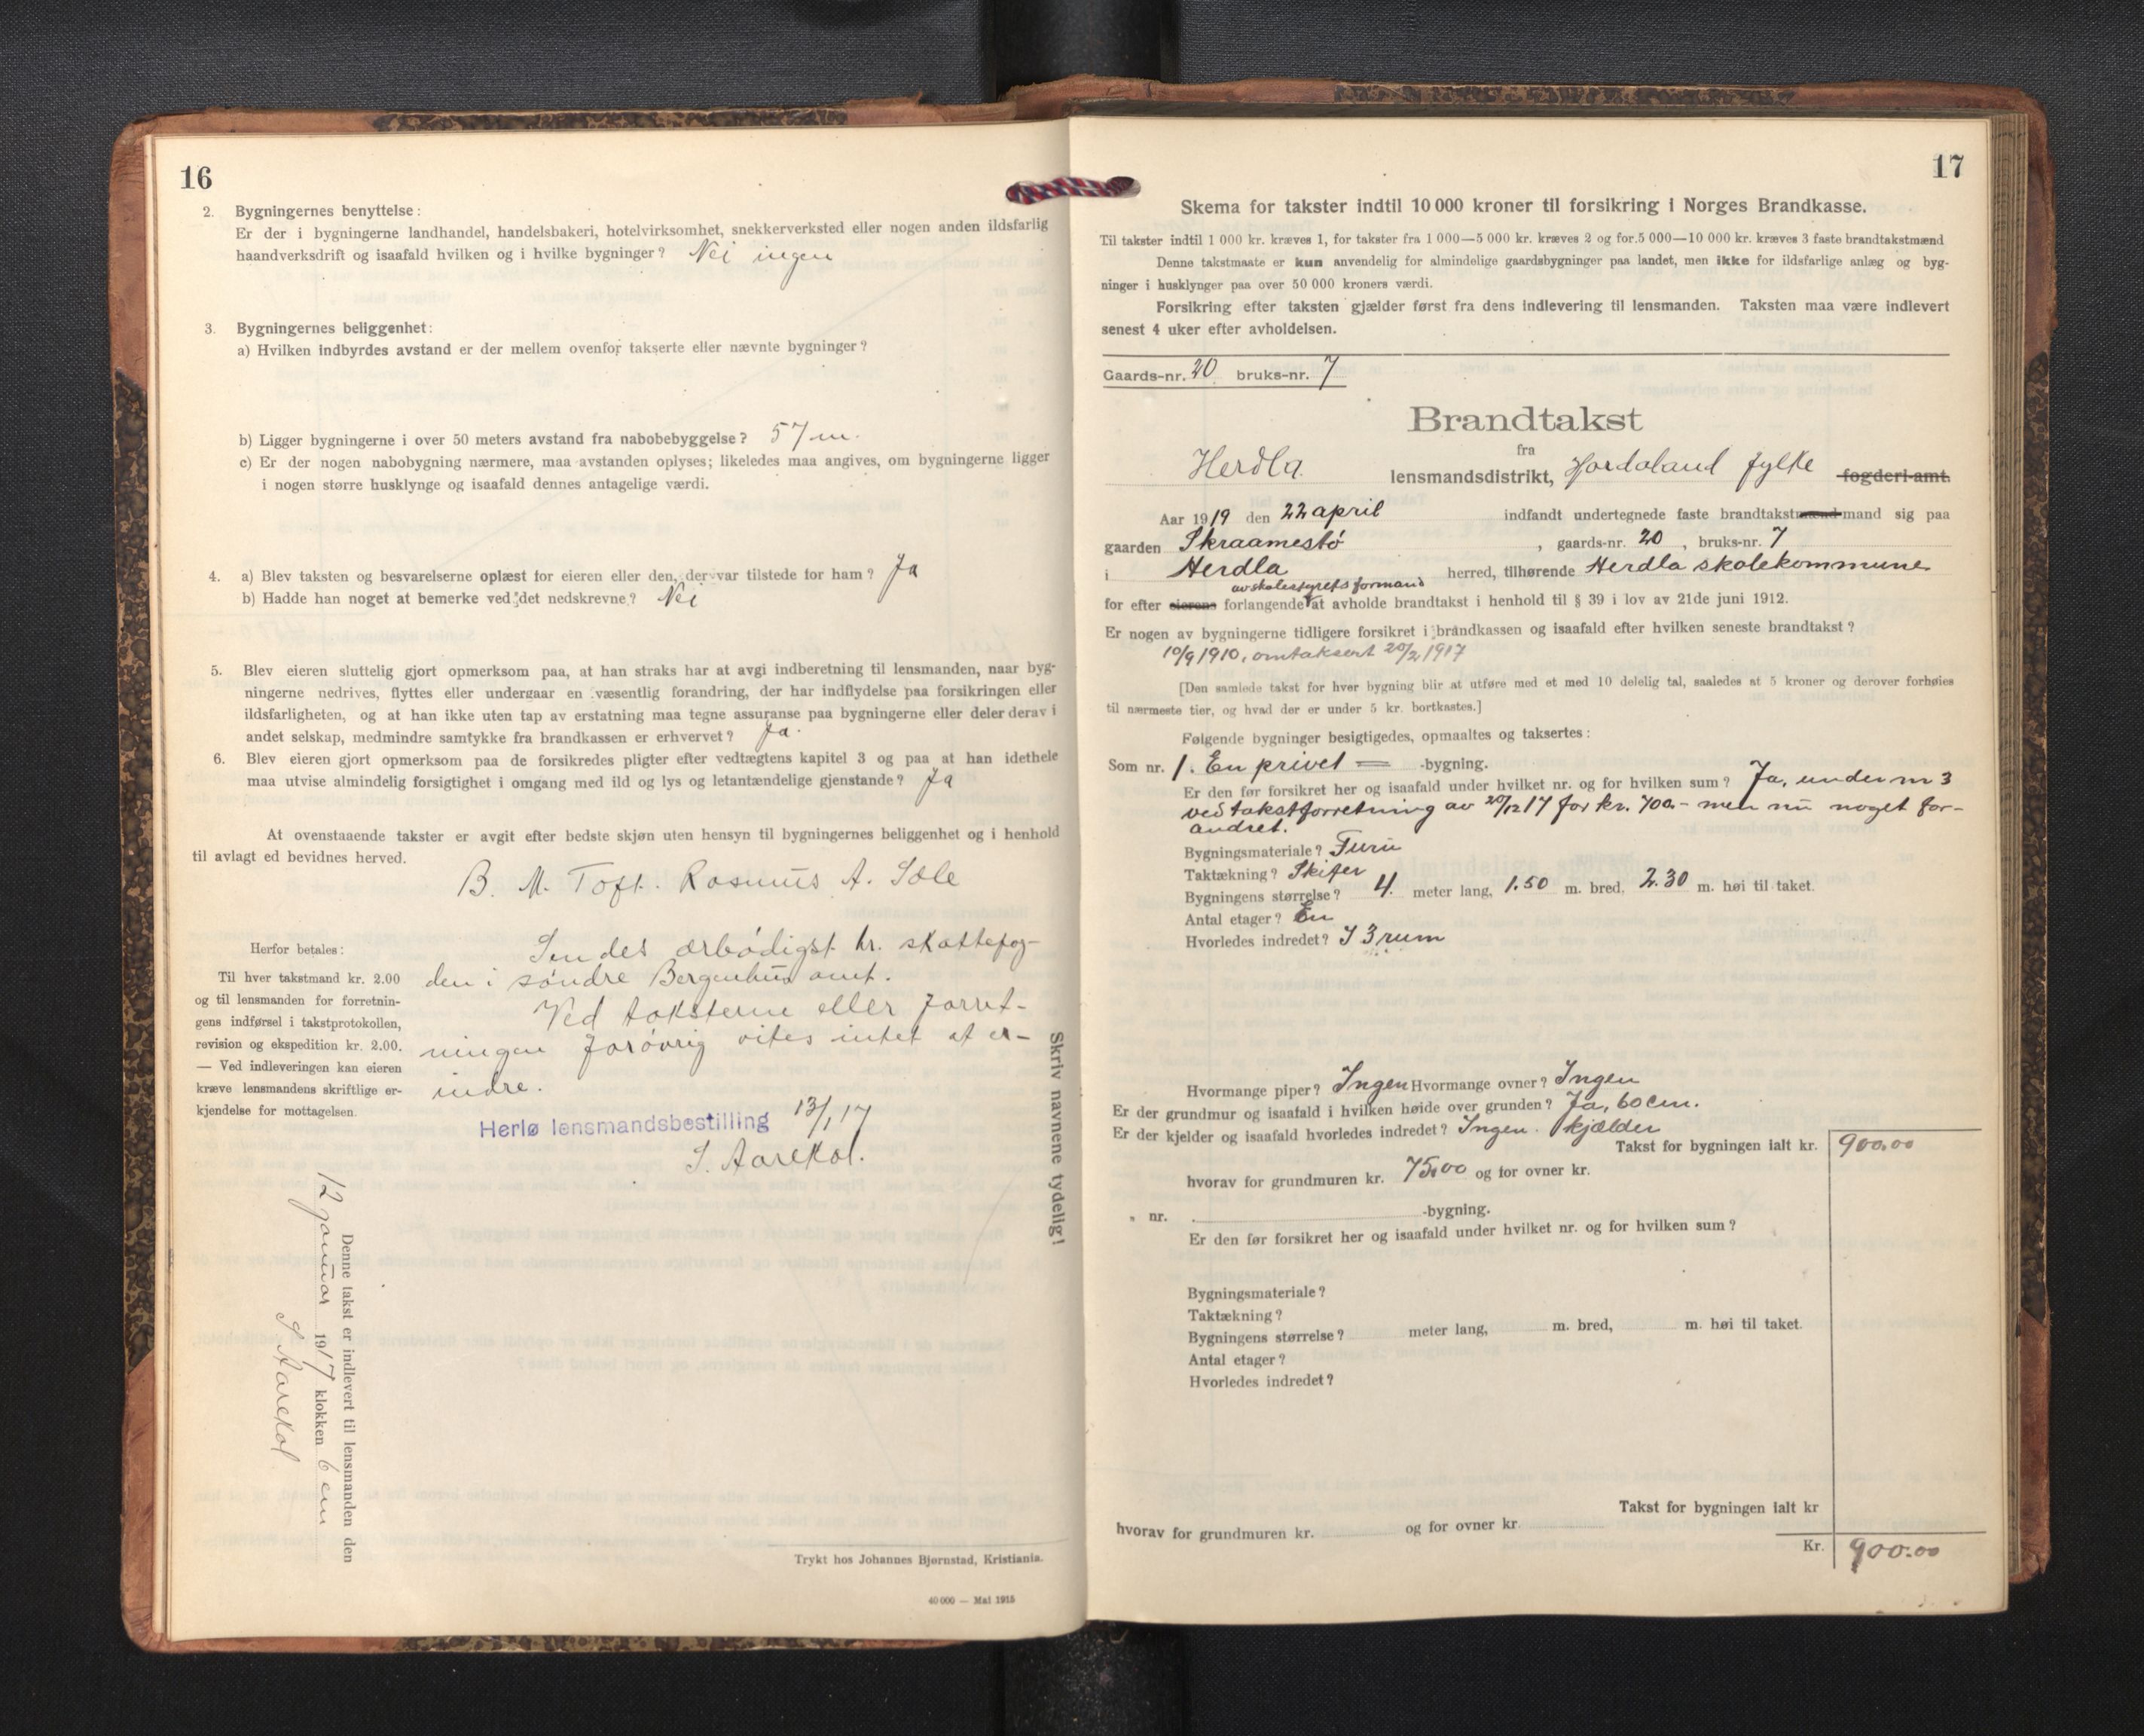 16
2. Bygningernes benyttelse:
Er der i bygningerne landhandel, handelsbakeri, hotelvirksomhet, snekkerverksted eller nogen anden ildsfarlig
haandverksdrift og isaafald hvilken og i hvilke bygninger? Nei ingen
3. Bygningernes beliggenhet:
a) Hvilken indbyrdes avstand er der mellem ovenfor takserte eller nævnte bygninger?
b) Ligger bygningerne i over 50 meters avstand fra nabobebyggelse? 57 m.
c) Er der nogen nabobygning nærmere, maa avstanden oplyses; likeledes maa angives, om bygningerne ligger
i nogen større husklynge og isaafald dennes antagelige værdi.
4. a) Blev taksten og besvarelserne oplæst for eieren eller den, der var tilstede for ham? Ja
b) Hadde han noget at bemerke ved det nedskrevne? Nei
5. Blev eieren sluttelig gjort opmerksom paa, at han straks har at avgi indberetning til lensmanden, naar byg-
ningerne nedrives, flyttes eller undergaar en væsentlig forandring, der har indflydelse paa forsikringen eller
ildsfarligheten, og at han ikke uten tap av erstatning maa tegne assuranse paa bygningerne eller deler derav i
andet selskap, medmindre samtykke fra brandkassen er erhvervet? Ja.
6. Blev eieren gjort opmerksom paa de forsikredes pligter efter vedtægtens kapitel 3 og paa at han idethele
maa utvise almindelig forsigtighet i omgang med ild og lys og letantændelige gjenstande? Ja
At ovenstaaende takster er avgit efter bedste skjøn uten hensyn til bygningernes beliggenhet og i henhold
til avlagt ed bevidnes herved.
B. M. Toft. Rasmus A. Sæle
Herfor betales:
Til hver takstmand kr. 2.00
og til lensmanden for forretnin-
gens indførsel i takstprotokollen,
revision og ekspedition kr. 2.00.
— Ved indleveringen kan eieren
kræve lensmandens skriftlige er-
kjendelse for mottagelsen.
Sendes ærbødigst hr. skattefog-
den i søndre Bergenhus amt.
Ved taksterne eller forret-
ningen forøvrig vites intet at er-
indre.
Herlø lensmandsbestilling 13/1 17
S. Aarekol.
Skriv navnene tydelig!
Denne takst er indlevert til lensmanden den
12 januar 1917 klokken 6 em
S Aarekol
Trykt hos Johannes Bjørnstad, Kristiania.
40 000 — Mai 1915
17
Skema for takster indtil 10 000 kroner til forsikring i Norges Brandkasse.
Til takster indtil 1 000 kr. kræves 1, for takster fra 1 000—5 000 kr. kræves 2 og for 5 000—10 000 kr. kræves 3 faste brandtakstmænd
Denne takstmaate er kun anvendelig for almindelige gaardsbygninger paa landet, men ikke for ildsfarlige anlæg og byg-
ninger i husklynger paa over 50 000 kroners værdi.
Forsikring efter taksten gjælder først fra dens indlevering til lensmanden. Taksten maa være indlevert
senest 4 uker efter avholdelsen.
Gaards-nr. 20 bruks-nr. 7
Brandtakst
fra
Herdla lensmandsdistrikt, Hordaland fylke fogderi amt.
Aar 1919 den 22 april indfandt undertegnede faste brandtakstmænd mand sig paa
gaarden Skraamestø, gaards-nr. 20, bruks-nr. 7
i Herdla herred, tilhørende Herdla skolekommune
av skolestyrets formand
for efter eierens forlangende at avholde brandtakst i henhold til § 39 i lov av 21de juni 1912.
Er nogen av bygningerne tidligere forsikret i brandkassen og isaafald efter hvilken seneste brandtakst?
10/9 1910, omtaksert 20/2 1917
[Den samlede takst for hver bygning blir at utføre med et med 10 delelig tal, saaledes at 5 kroner og derover forhøies
til nærmeste tier, og hvad der er under 5 kr. bortkastes.]
Følgende bygninger besigtigedes, opmaaltes og taksertes:
Som nr. 1. En privet -bygning.
Er den før forsikret her og isaafald under hvilket nr. og for hvilken sum? Ja, under nr 3
ved takstforretning av 20/12 17 for kr. 700.- men nu noget for-
andret.
Bygningsmateriale? Furu
Taktækning? Skifer
Bygningens størrelse? 4. meter lang, 1.50 m. bred, 2.30 m. høi til taket.
Antal etager? En
Hvorledes indredet? I 3 rum
Hvormange piper? Ingen Hvormange ovner? Ingen
Er der grundmur og isaafald i hvilken høide over grunden? Ja, 60 cm.
Er der kjelder og isaafald hvorledes indredet? Ingen kjælder
Takst for bygningen ialt kr. 900.00
hvorav for grundmuren kr. 75.00 og for ovner kr.
„ nr. -bygning.
Er den før forsikret her og isaafald under hvilket nr. og for hvilken sum?
Bygningsmateriale?
Taktækning?
Bygningens størrelse? meter lang, m. bred, m. høi til taket.
Antal etager?
Hvorledes indredet?
Takst for bygningen ialt kr
hvorav for grundmuren kr. og for ovner kr.
Kr. 900.00